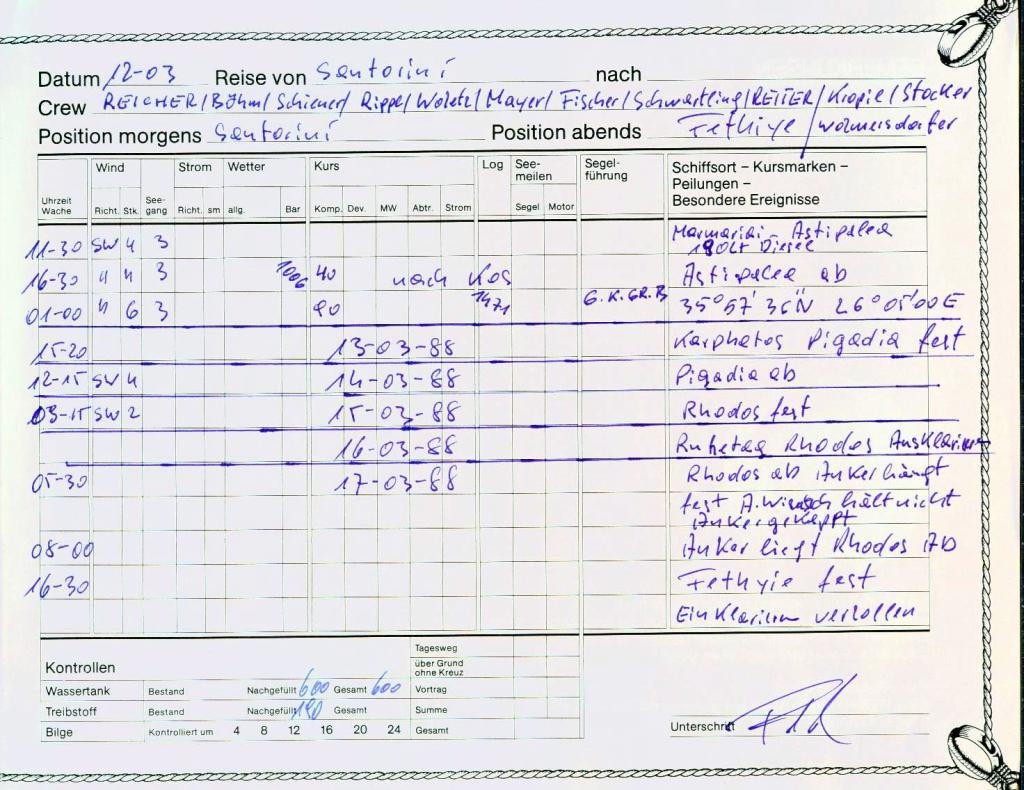 Datum 12-03 Reise von Santorini nach
Crew REICHER/Böhm/Schiener/Rippel/Woletz/Mayer/Fischer/Schwartling/REITER/Kropie/Stocker
Position morgens Santorini Position abends Fethiye /wolmersdorfer
Wind Strom Wetter Kurs Log See-meilen Segel-führung Schiffsort – Kursmarken – Peilungen – Besondere Ereignisse
Uhrzeit Wache Richt. Stk. See-gang Richt. sm allg. Bar Komp. Dev. MW Abtr. Strom Segel Motor
11-30 SW 4 3 Marmariai - Astipalea
190Lt Diesel
16-30 4 4 3 1006 40 nach Kos Astipalea ab
01-00 4 6 3 90 1471 G.K.GR.B 35°57'36"N 26°05'00E
15-20 13-03-88 Karphatos Pigadia fest
12-15 SW 4 14-03-88 Pigadia ab
03-15 SW 2 15-03-88 Rhodos fest
16-03-88 Ruhetag Rhodos Ausklarieren
05-30 17-03-88 Rhodos ab Anker hängt
fest A.Winsch hält nicht
Anker gekappt
08-00 Anker liegt Rhodos AD
16-30 Fethyie fest
Einklarieren verzollen
Kontrollen
Wassertank Bestand Nachgefüllt 600 Gesamt 600
Treibstoff Bestand Nachgefüllt 190 Gesamt
Bilge Kontrolliert um 4 8 12 16 20 24
Tagesweg
über Grund ohne Kreuz
Vortrag
Summe
Gesamt
Unterschrift